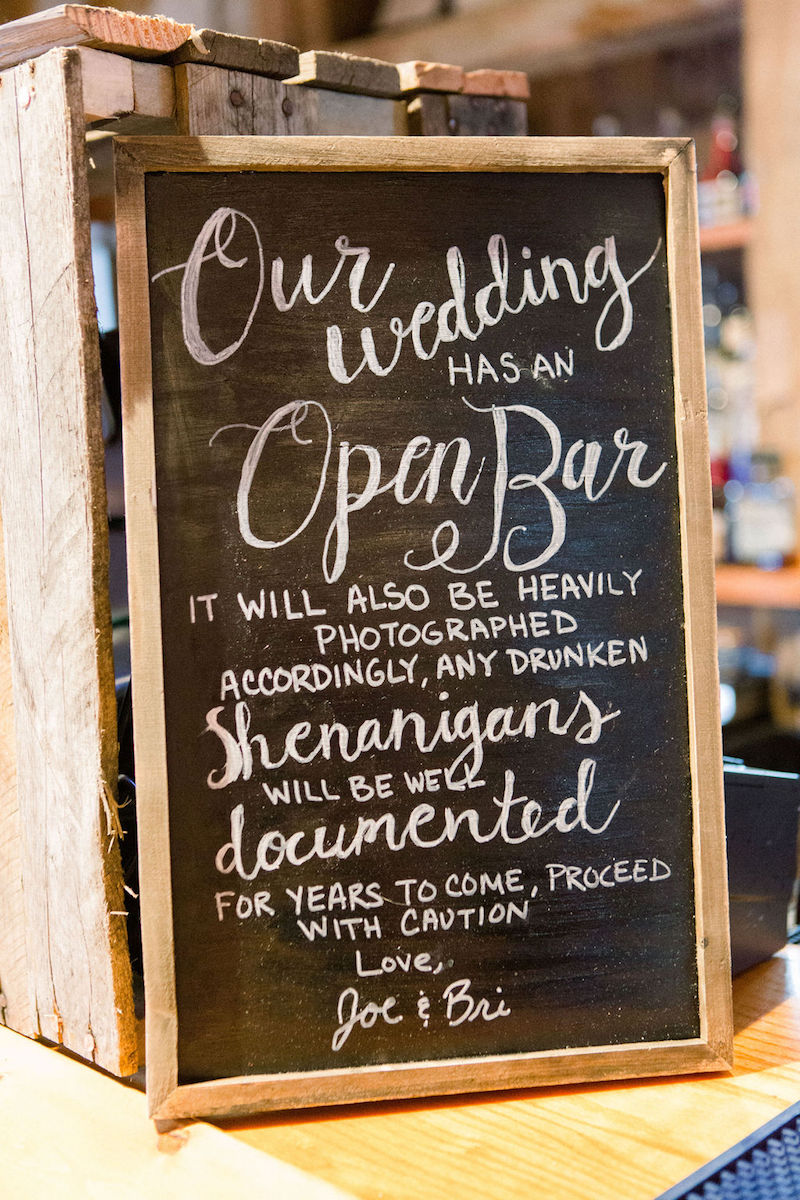 Our wedding
HAS AN
Open Bar
IT WILL ALSO BE HEAVILY
PHOTOGRAPHED
ACCORDINGLY, ANY DRUNKEN
Shenanigans
WILL BE WELL
documented
FOR YEARS TO COME, PROCEED
WITH CAUTION
Love,
Joe & Bri